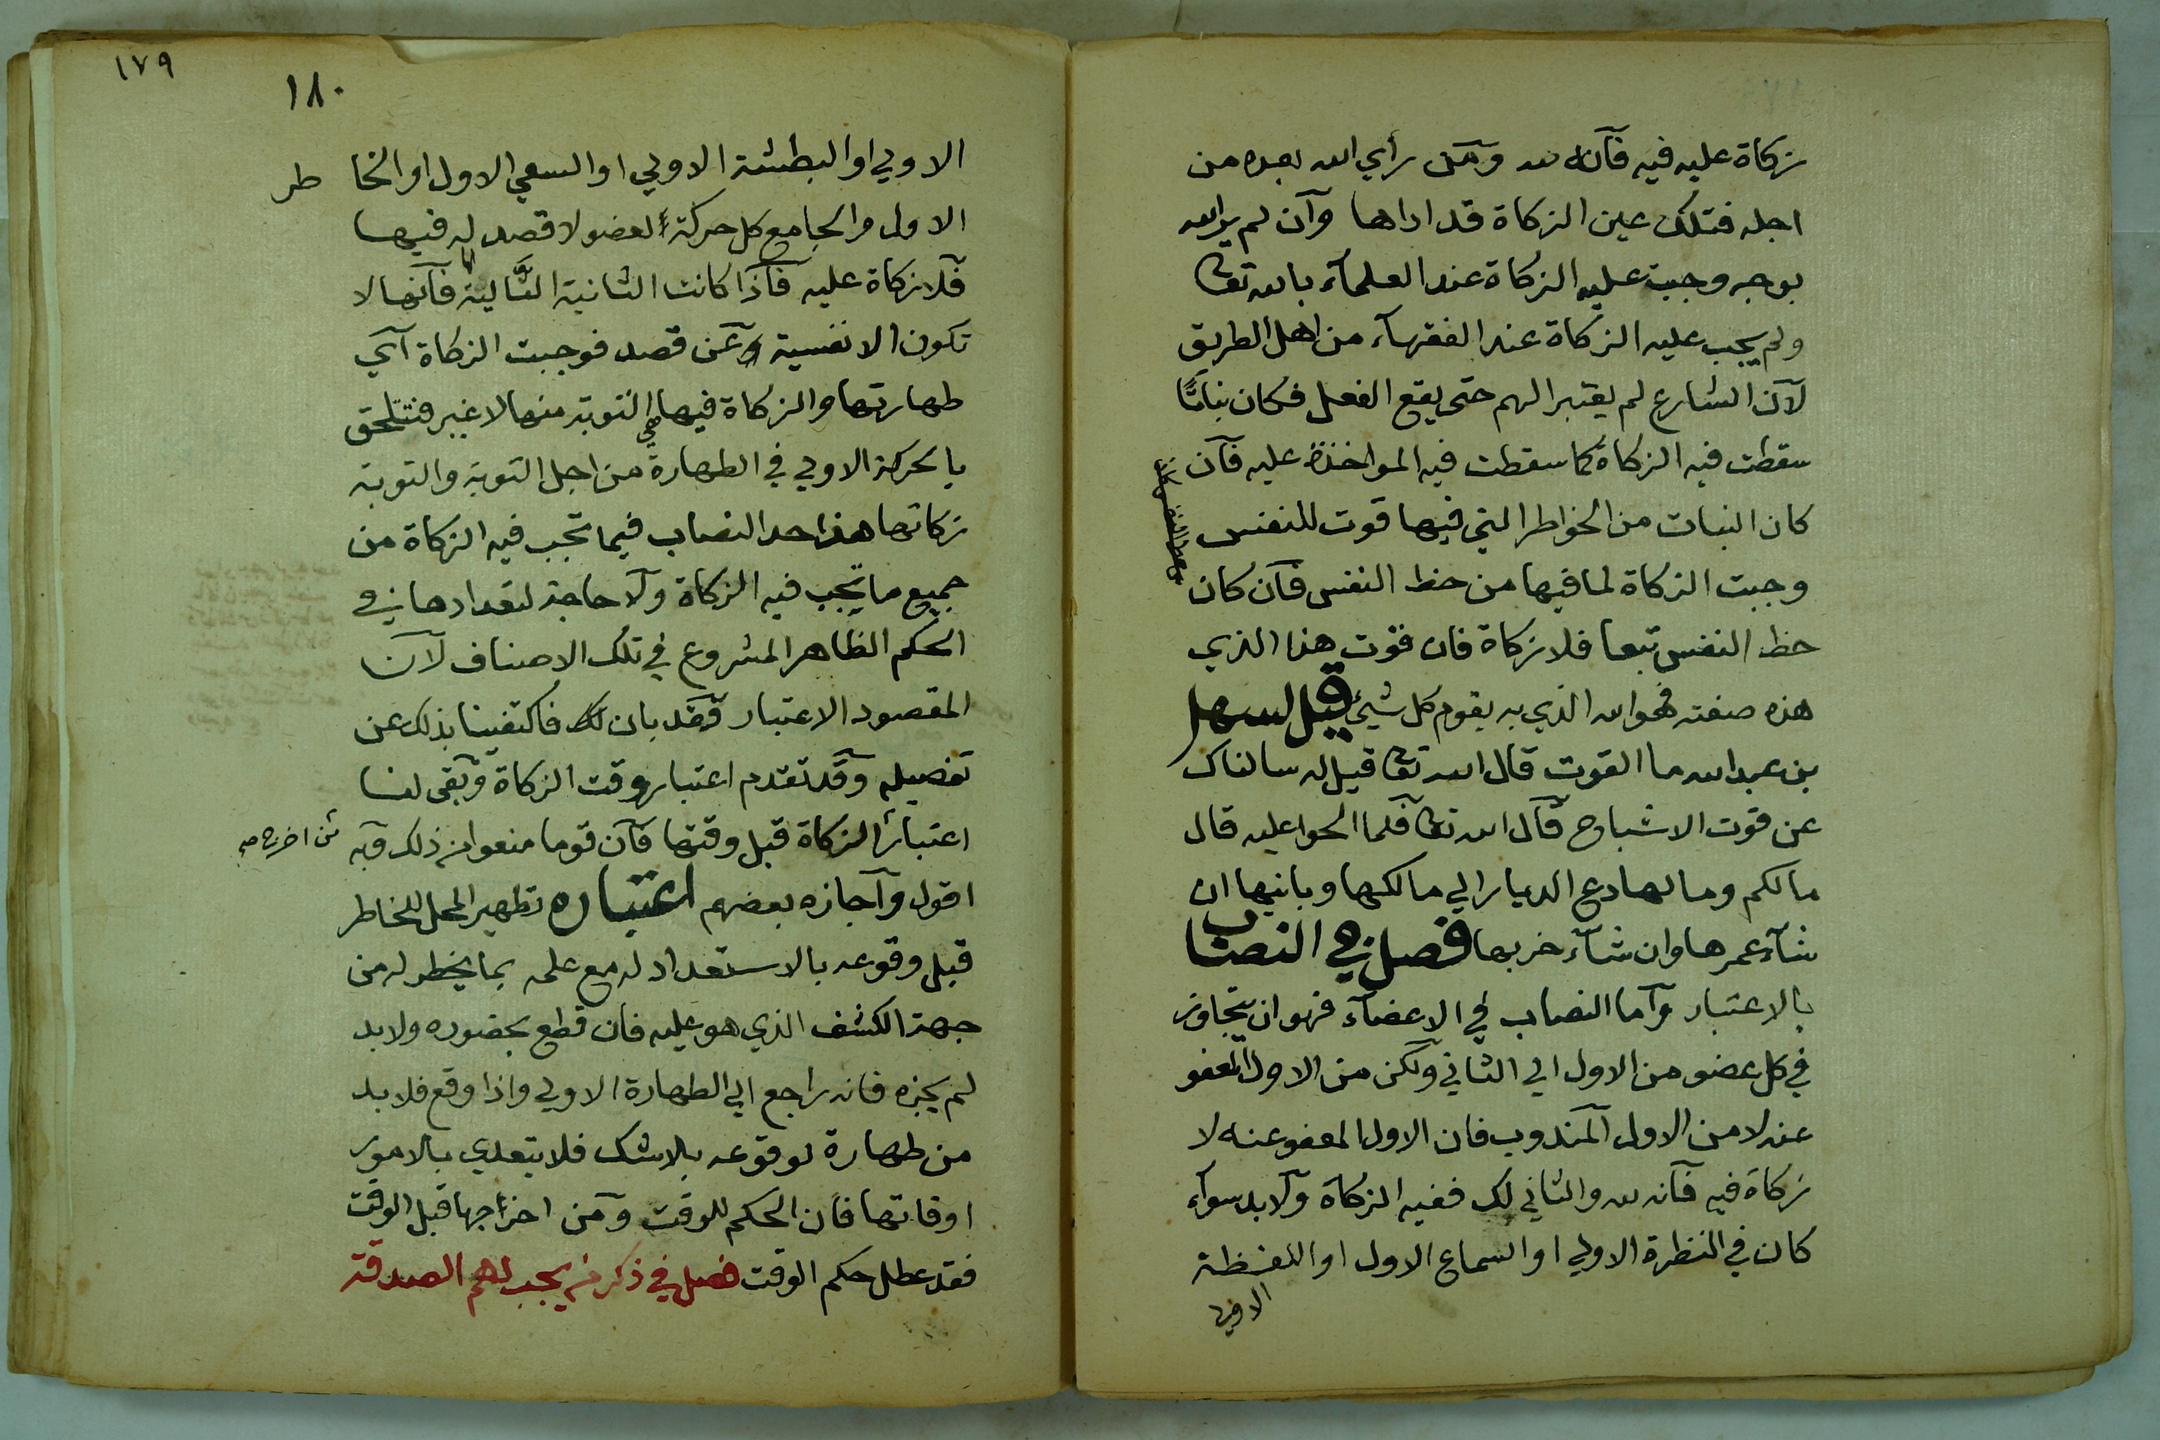 زكاة عليه فيه فآنه لله وآمن رأي الله بعده من
اجله فتلك عين الزكاة قد اداها وآن لم ير الله
بوجه وجبت عليه الزكاة عند العلمآء بالله تعا
ولم يجب عليه الزكاة عند الفقهآء من اهل الطريق
لآن الشارع لم يعتبر الهم حتى يقع الفعل فكان نباتًا
سقطت فيه الزكاة كما سقطت فيه المواخذة عليه فآن
كان النبات من الخواطر التي فيها قوت للنفس
وجبت الزكاة لما فيها من حظ النفس فآن كان
حظ النفس تبعا فلا زكاة فان قوت هذا الذي
هذه صفته فهو الله الذي به يقوم كل شيئ قيل لسهل
بن عبد الله ما القوت قال الله تعا قيل له سالناك
عن قوت الاشباح قآل الله تعا فلما الحوا عليه قال
مالكم وما لها دع الديار الي مالكها وبانيها ان
شآء عمرها وان شآء خربها فصل في النصاب
بالاعتبار وآما النصاب في الاعضآء فهو ان يتجاوز
في كل عضو من الاول الي الثاني ولكن من الاول المعفو
عنه لا من الاول المندوب فان الاول المعفو عنه لا
زكاة فيه فآنه لله والثاني لك ففيه الزكاة ولا بد سوآء
كان في النظرة الاولي او السماع الاول او اللفظة
الاولي
١٧٩
١٨٠
الاولي او البطشة الاولي او السعي الاول او الخا طر
الاول والجامع كل حركة لعضو لا قصد له فيها
فلا زكاة عليه فآذا كانت الثانية التالية لها فآنها لا
تكون الا نفسية وعن قصد فوجبت الزكاة آي
طهارتها والزكاة فيها هي التوبة منها لا غير فتلتحق
بالحركة الاولي في الطهارة من اجل التوبة والتوبة
زكاتها هذا حد النصاب فيما تجب فيه الزكاة من
جميع ما يجب فيه الزكاة ولا حاجة لتعدادها في
الحكم الظاهر المشروع في تلك الاصناف لآن
المقصود الاعتبار فقد بان لك فاكتفينا بذلك عن
تفصيله وقد تقدم اعتبار وقت الزكاة وبقي لنا
اعتبار الزكاة قبل وقتها فآن قوما منعوا من ذلك وبه
اقول وآجازه بعضهم اعتباره تطهير المحل للخاطر
قبل وقوعه بالاستعداد له مع علمه بما يخطر له من
جهة الكشف الذي هو عليه فان قطع بحضوره ولا بد
لم يجزه فانه راجع الي الطهارة الاولي واذا وقع فلا بد
من طهارة لوقوعه بلا شك فلا يتعدي بالامور
اوقاتها فان الحكم للوقت وآمن اخراجها قبل الوقت
فقد عطل حكم الوقت فصل في ذكر من يجب لهم الصدقة